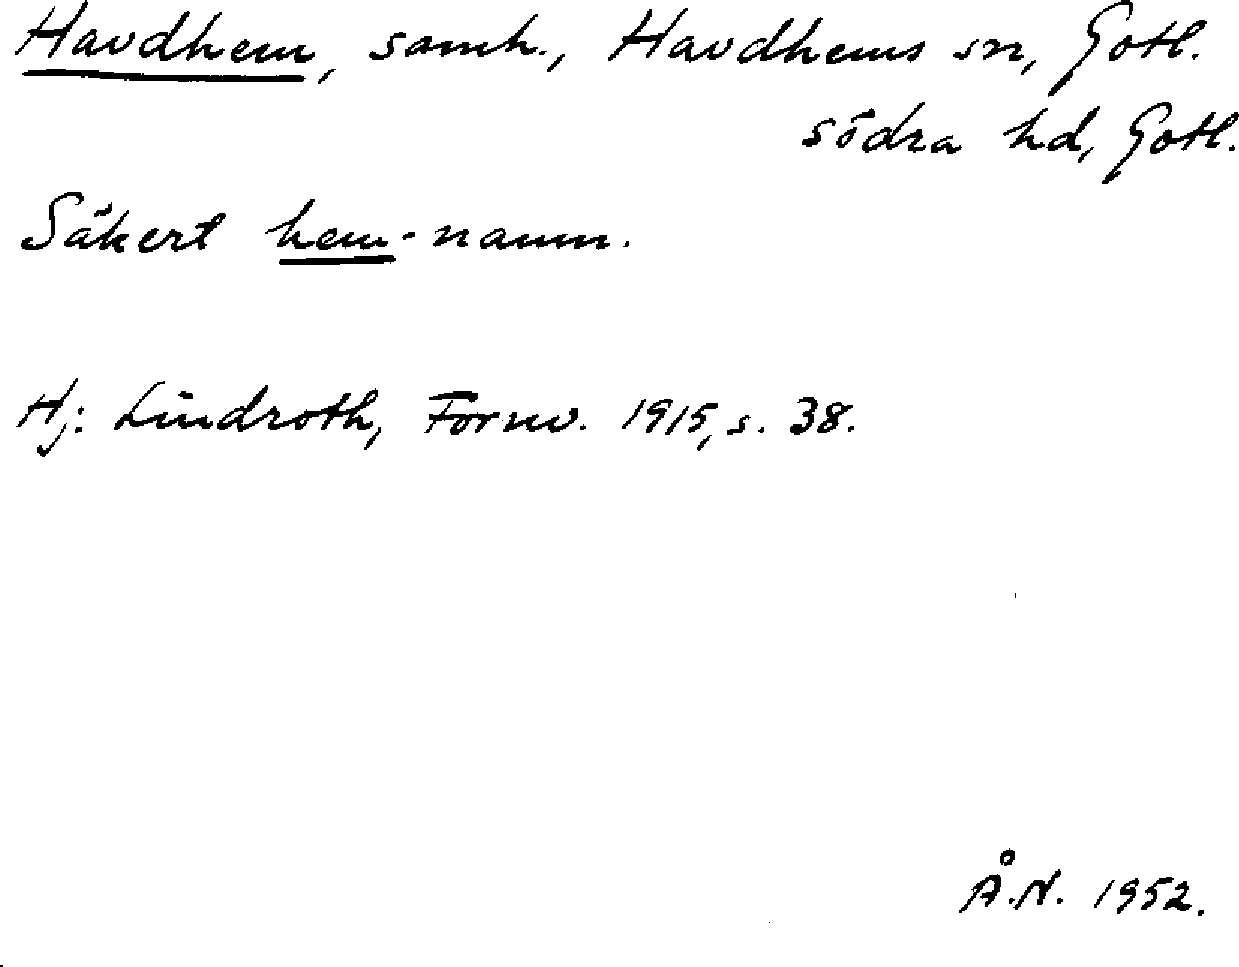 Havdhem, samh., Havdhems sn, Gotl.
södra hd, Gotl.
Säkert hem-namn.
Hj: Lindroth, Fornv. 1915, s. 38.
Å.N. 1952.